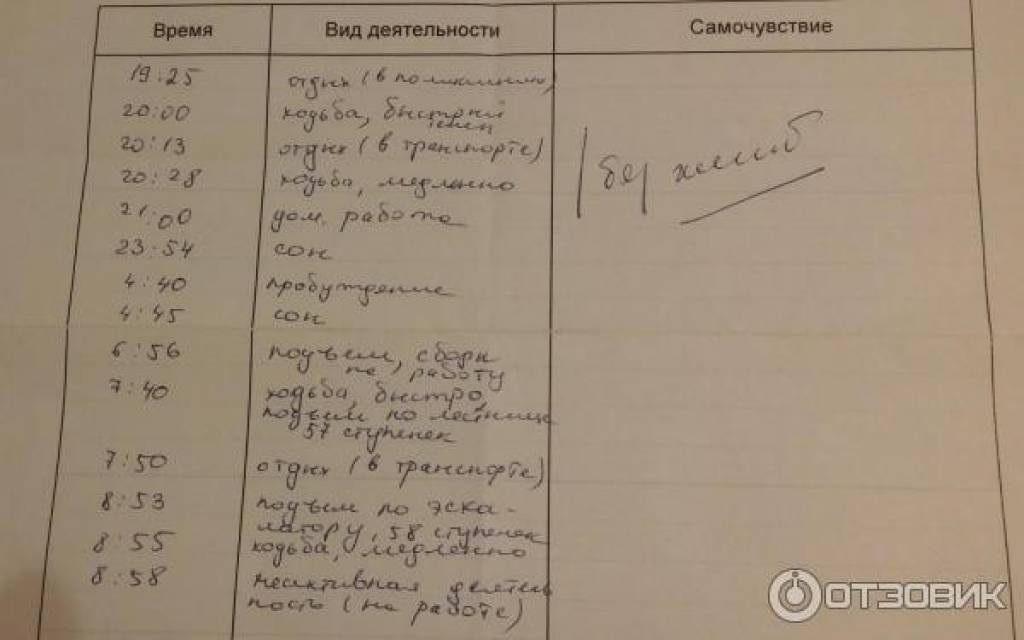 Время Вид деятельности Самочувствие
19:25 отдых (в поликлинике)
20:00 ходьба, быстрый
темп
20:13 отдых (в транспорте)
20:28 ходьба, медленно
21:00 дом. работа
23:54 сон
4:40 пробуждение
4:45 сон
6:56 подъем, сборы
на работу
7:40 ходьба, быстро,
подъем по лестнице
57 ступенек
7:50 отдых (в транспорте)
8:53 подъем по эска-
латору, 58 ступенек
8:55 ходьба, медленно
8:58 неактивная деятель
ность (на работе)
без жалоб
ОТЗОВИК